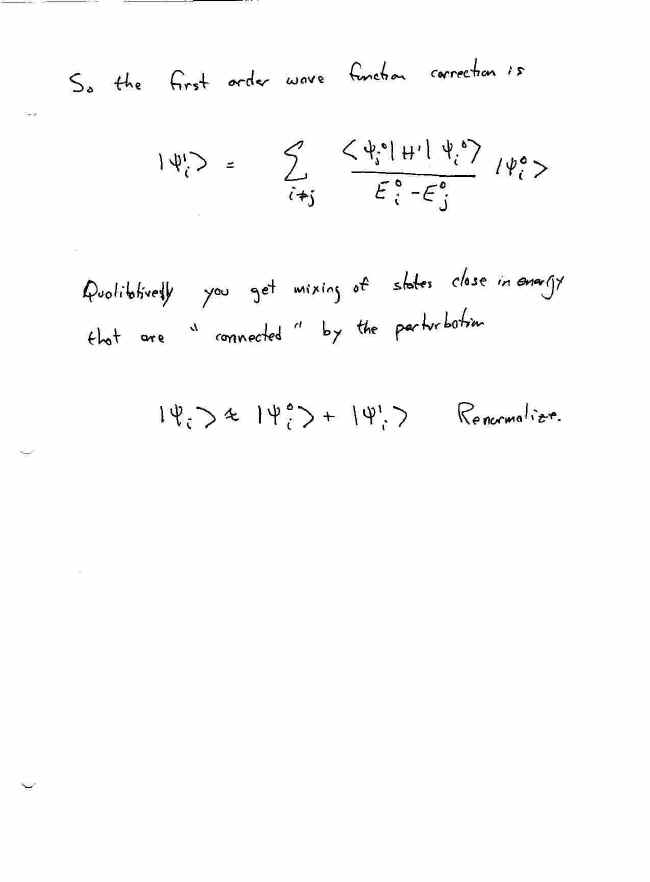 So the first order wave function correction is
|ψ¹ᵢ> = Σ_{i≠j} <ψⱼ⁰|H'|ψᵢ⁰> / (Eᵢ⁰ - Eⱼ⁰) |ψᵢ⁰>
Qualitatively you get mixing of states close in energy
that are "connected" by the perturbation
|ψᵢ> ≈ |ψᵢ⁰> + |ψ¹ᵢ> Renormalize.